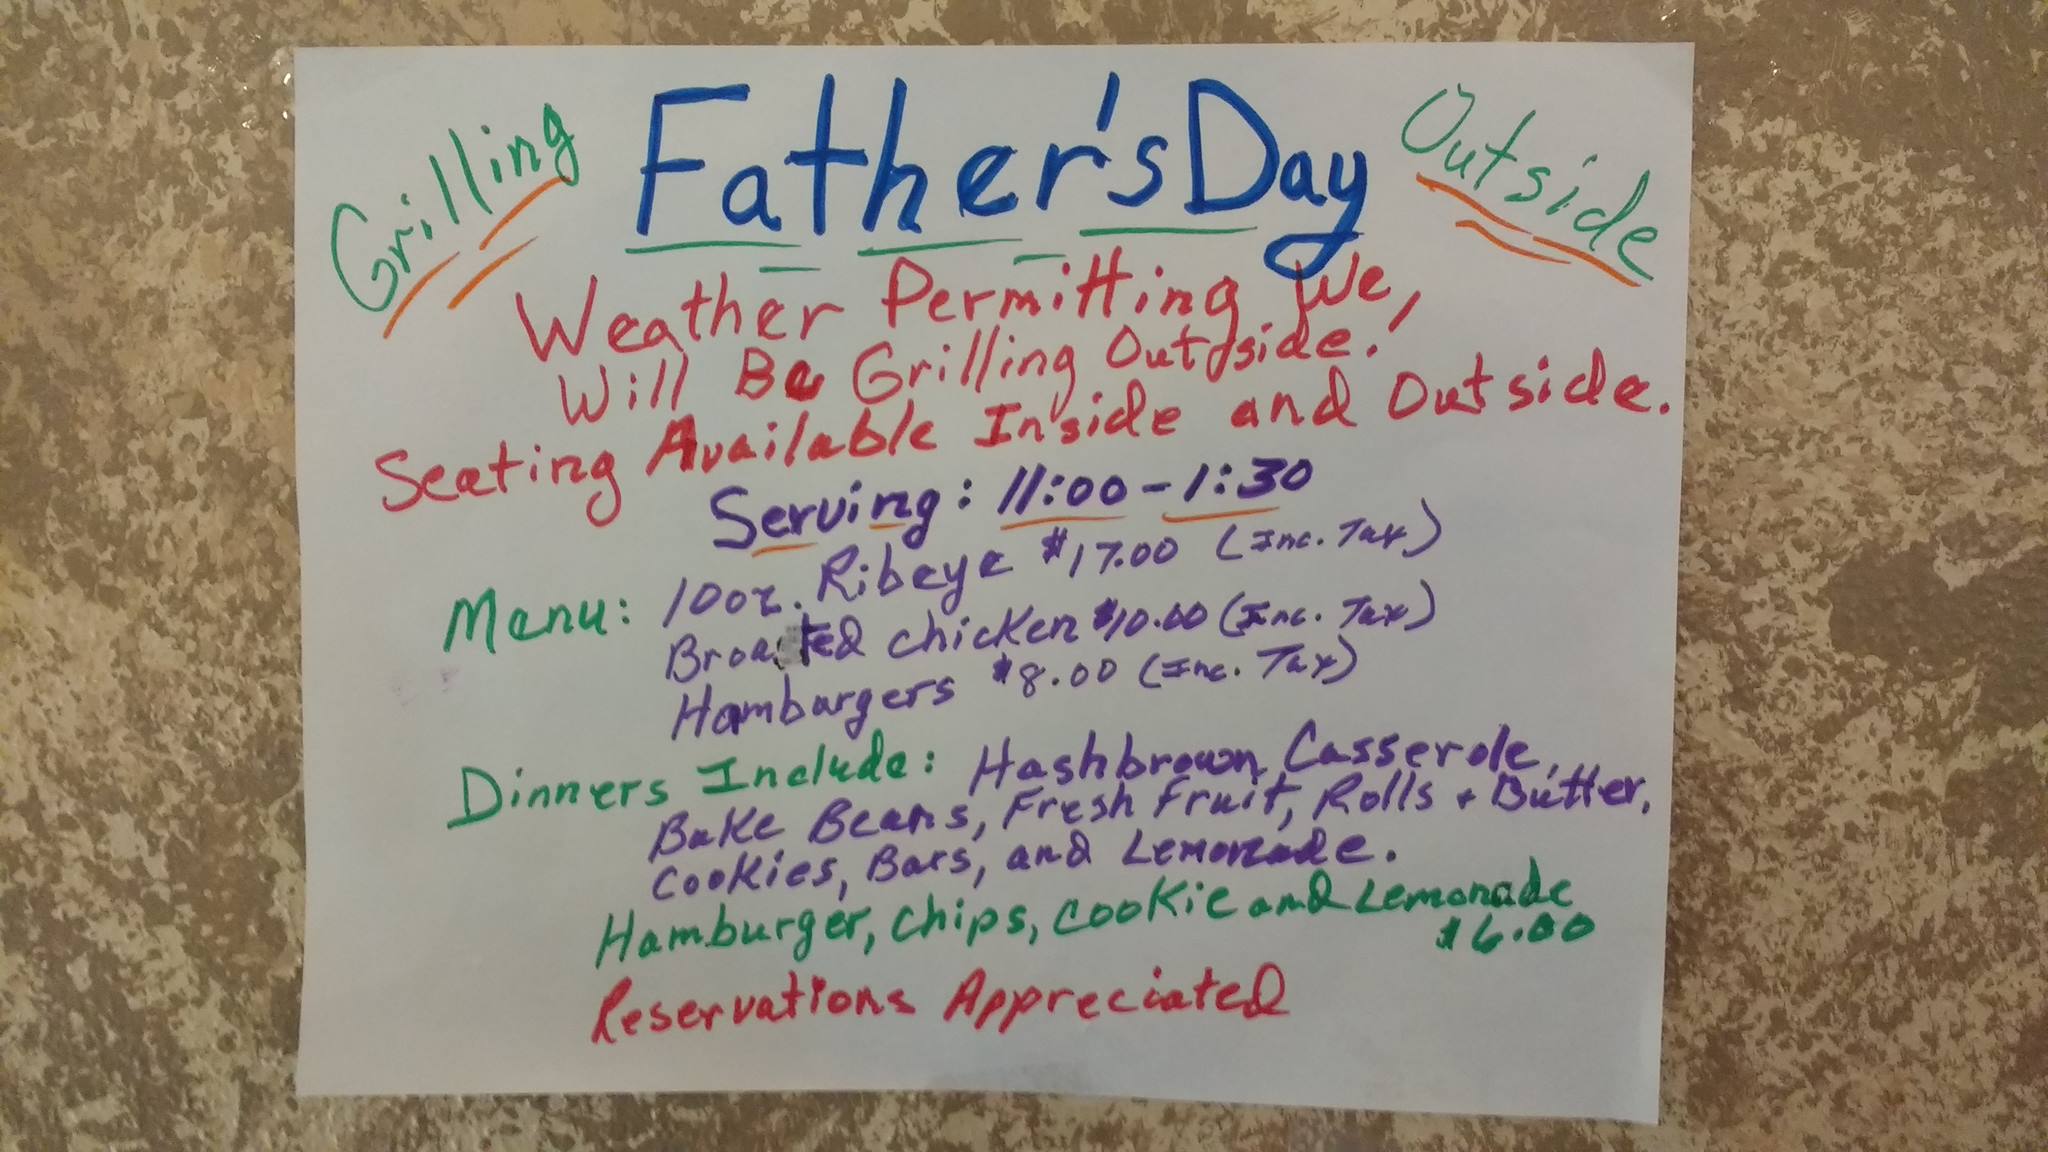 Grilling
Father's Day
Outside
Weather Permitting We,
Will Be Grilling Outside!
Seating Available Inside and Outside.
Serving: 11:00-1:30
Menu: 10oz. Ribeye $17.00 (Inc. Tax)
Broasted chicken $10.00 (Inc. Tax)
Hamburgers $8.00 (Inc. Tax)
Dinners Include: Hashbrown Casserole,
Bake Beans, Fresh Fruit, Rolls + Butter,
Cookies, Bars, and Lemonade.
Hamburger, Chips, Cookie and Lemonade
$6.00
Reservations Appreciated